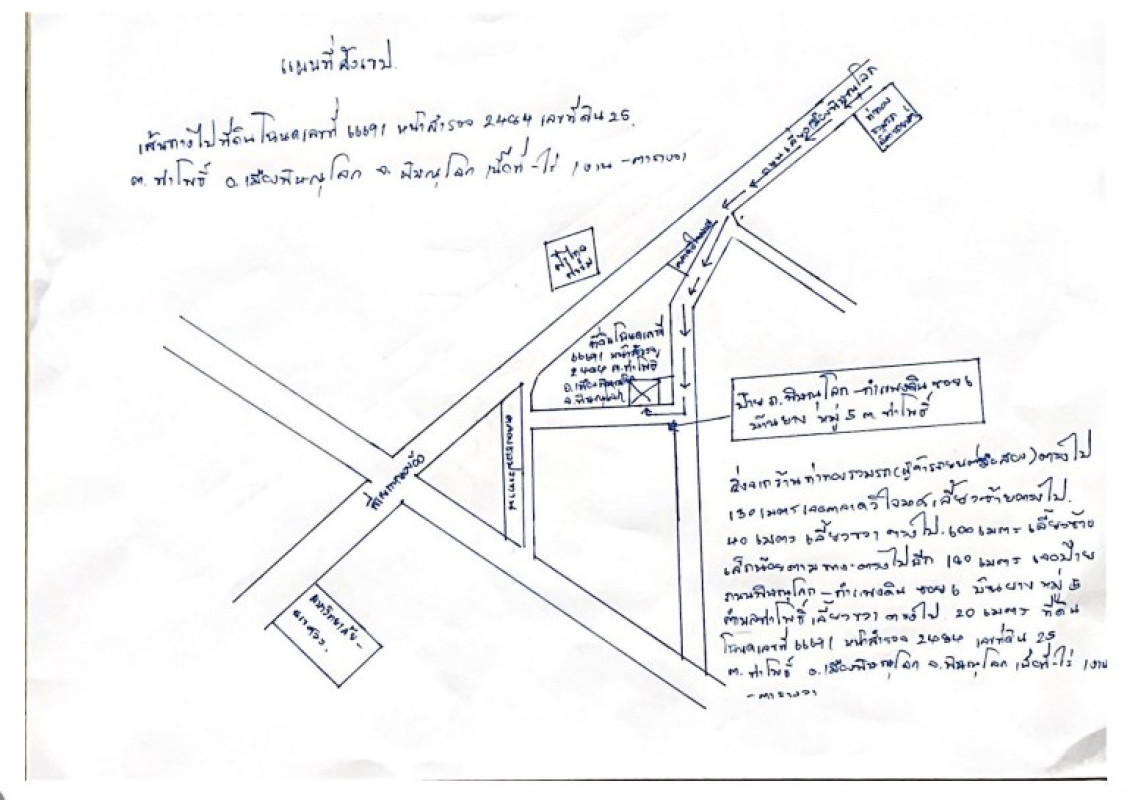 แผนที่สังเขป.
เส้นทางไปที่ดินโฉนดเลขที่ 66691 หน้าสำรวจ 2484 เลขที่ดิน 25.
ต. ท่าโพธิ์ อ.เมืองพิษณุโลก จ. พิษณุโลก เนื้อที่ -ไร่ 1งาน -ตารางวา
ถนนเลี่ยงเมืองพิษณุโลก
ท่าทอง
รวมรถ
ที่ดินโฉนดเลขที่
66691 หน้าสำรวจ
2484 ต.ท่าโพธิ์
อ.เมืองพิษณุโลก
จ.พิษณุโลก
ป้าย ถ.พิษณุโลก-กำแพงดิน ซอย 6
บ้านยาง หมู่ 5 ต.ท่าโพธิ์
สี่แยกหนองอ้อ
มหาวิทยาลัย-
นเรศวร.
สิ่งจากร้านท่าทองรวมรถ(ผู้ค้ารถยนต์มือสอง)ตรงไป
130 เมตร เจอตลาด เลี้ยวซ้ายตรงไป.
40 เมตร เลี้ยวขวา ตรงไป. 600 เมตร เลี้ยวซ้าย
เล็กน้อยตามทาง ตรงไปอีก 140 เมตร เจอป้าย
ถนนพิษณุโลก-กำแพงดิน ซอย 6 บ้านยาง หมู่ 5
ตำบลท่าโพธิ์ เลี้ยวขวา ตรงไป 20 เมตร ที่ดิน
โฉนดเลขที่ 66691 หน้าสำรวจ 2484 เลขที่ดิน 25
ต. ท่าโพธิ์ อ.เมืองพิษณุโลก จ.พิษณุโลก เนื้อที่ -ไร่ 1งาน
-ตารางวา